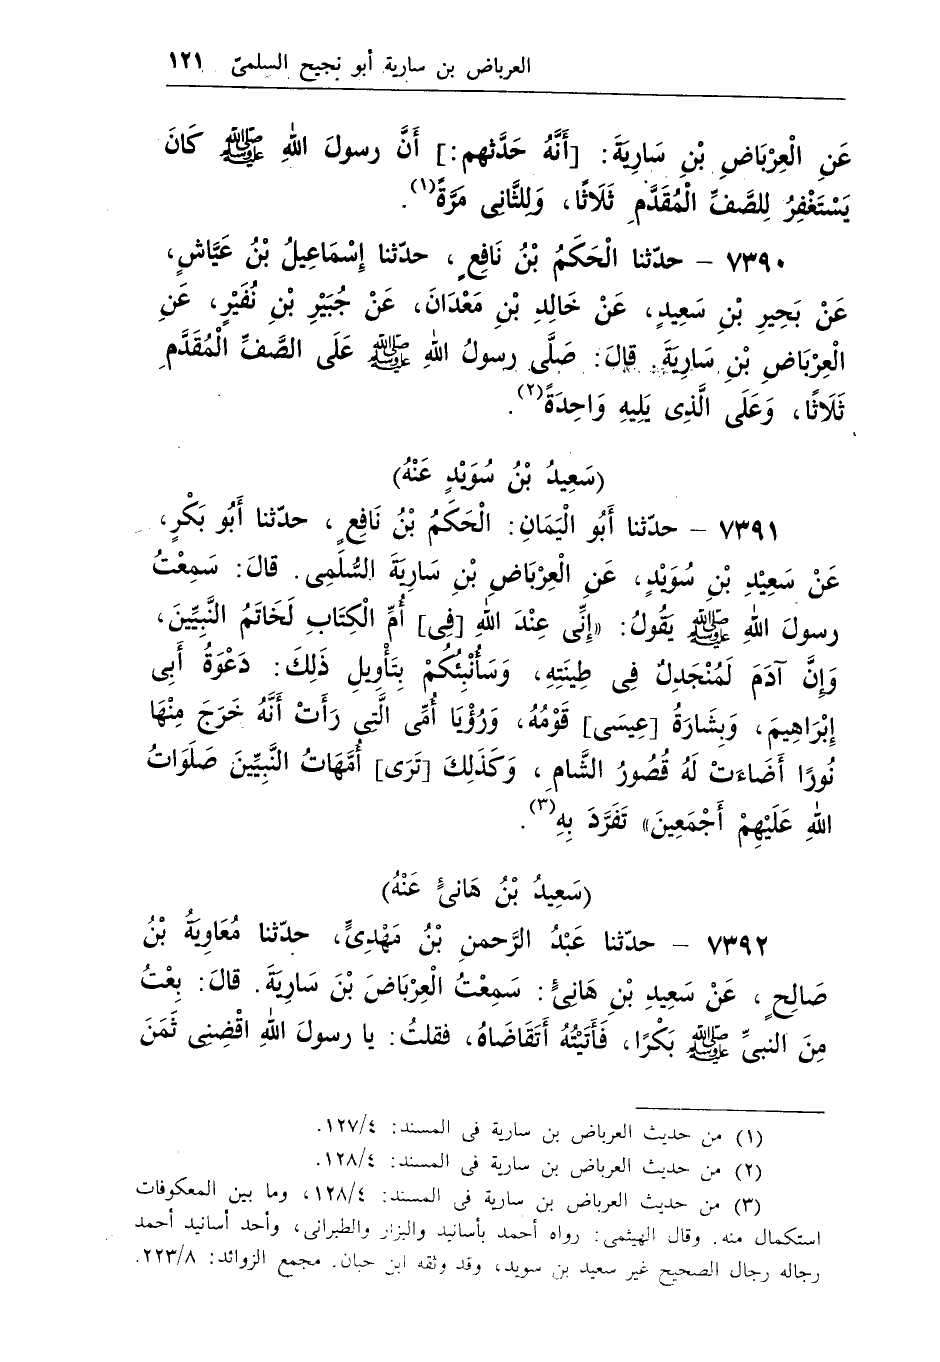 العرباض بن سارية أبو نجيح السلمىّ ١٢١
عَنِ الْعِرْبَاضِ بْنِ سَارِيَةَ: [أَنَّهُ حَدَّثهم:] أَنَّ رسولَ اللهِ ﷺ كَانَ
يَسْتَغْفِرُ لِلصَّفِّ الْمُقَدَّمِ ثَلَاثًا، وَلِلثَّانِى مَرَّةً(١).
٧٣٩٠ - حدّثنا الْحَكَمُ بْنُ نَافِعٍ، حدّثنا إِسْمَاعِيلُ بْنُ عَيَّاشٍ،
عَنْ بَحِيرِ بْنِ سَعِيدٍ، عَنْ خَالِدِ بْنِ مَعْدَانَ، عَنْ جُبَيْرِ بْنِ نُفَيْرٍ، عَنِ
الْعِرْبَاضِ بْنِ سَارِيَةَ. قالَ: صَلَّى رسولُ اللهِ ﷺ عَلَى الصَّفِّ الْمُقَدَّمِ
ثَلَاثًا، وَعَلَى الَّذِى يَلِيهِ وَاحِدَةً(٢).
(سَعِيدُ بْنُ سُوَيْدٍ عَنْهُ)
٧٣٩١ - حدّثنا أَبُو الْيَمَانِ: الْحَكَمُ بْنُ نَافِعٍ، حدّثنا أَبُو بَكْرٍ،
عَنْ سَعِيْدِ بْنِ سُوَيْدٍ، عَنِ الْعِرْبَاضِ بْنِ سَارِيَةَ السُّلَمِى. قالَ: سَمِعْتُ
رسولَ اللهِ ﷺ يَقُولُ: «إِنِّى عِنْدَ اللهِ [فِى] أُمِّ الْكِتَابِ لَخَاتَمُ النَّبِيِّينَ،
وَإِنَّ آدَمَ لَمُنْجَدِلٌ فِى طِينَتِهِ، وَسَأُنْبِئُكُمْ بِتَأْوِيلِ ذَلِكَ: دَعْوَةُ أَبِى
إِبْرَاهِيمَ، وَبِشَارَةُ [عِيسَى] قَوْمُهُ، وَرُؤْيَا أُمِّى الَّتِى رَأَتْ أَنَّهُ خَرَجَ مِنْهَا
نُورًا أَضَاءَتْ لَهُ قُصُورُ الشَّامِ، وَكَذَلِكَ [تَرَى] أُمَّهَاتُ النَّبِيِّينَ صَلَوَاتُ
اللهِ عَلَيْهِمْ أَجْمَعِينَ» تَفَرَّدَ بِهِ(٣).
(سَعِيدُ بْنُ هَانِئٍ عَنْهُ)
٧٣٩٢ - حدّثنا عَبْدُ الرَّحمنِ بْنُ مَهْدِىٍّ، حدّثنا مُعَاوِيَةُ بْنُ
صَالِحٍ، عَنْ سَعِيدِ بْنِ هَانِئٍ: سَمِعْتُ الْعِرْبَاضَ بْنَ سَارِيَةَ. قالَ: بِعْتُ
مِنَ النبىِّ ﷺ بَكْرًا، فَأَتَيْتُهُ أَتَقَاضَاهُ، فقلتُ: يا رسولَ اللهِ اقْضِنِى ثَمَنَ
(١) من حديث العرباض بن سارية فى المسند: ١٢٧/٤.
(٢) من حديث العرباض بن سارية فى المسند: ١٢٨/٤.
(٣) من حديث العرباض بن سارية فى المسند: ١٢٨/٤، وما بين المعكوفات
استكمال منه. وقال الهيثمى: رواه أحمد بأسانيد والبزار والطبرانى، وأحد أسانيد أحمد
رجاله رجال الصحيح غير سعيد بن سويد، وقد وثقه ابن حبان. مجمع الزوائد: ٢٢٣/٨.